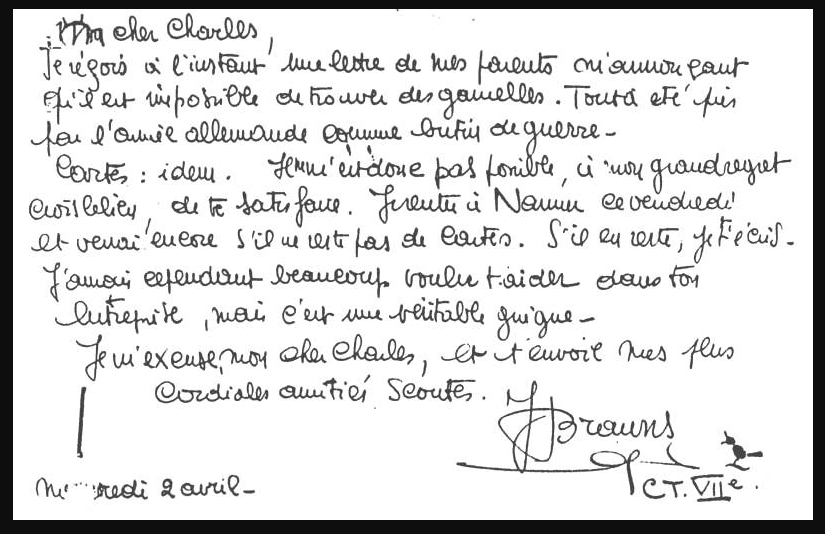 Mon cher Charles,
Je reçois à l'instant une lettre de mes parents m'annonçant
qu'il est impossible de trouver des gamelles. Tout a été pris
par l'armée allemande comme butin de guerre -
Cartes : idem. Il ne m'est donc pas possible, à mon grand regret
crois le bien, de te satisfaire. Je rentre à Namur ce vendredi
et verrai encore s'il ne reste pas de cartes. S'il en reste, je t'écris -
J'aurais cependant beaucoup voulu t'aider dans ton
entreprise, mais c'est une véritable guigne -
Je m'excuse, mon cher Charles, et t'envoie mes plus
cordiales amitiés Scoutes.
J Brauns
CT. VIIe.
Mercredi 2 avril -